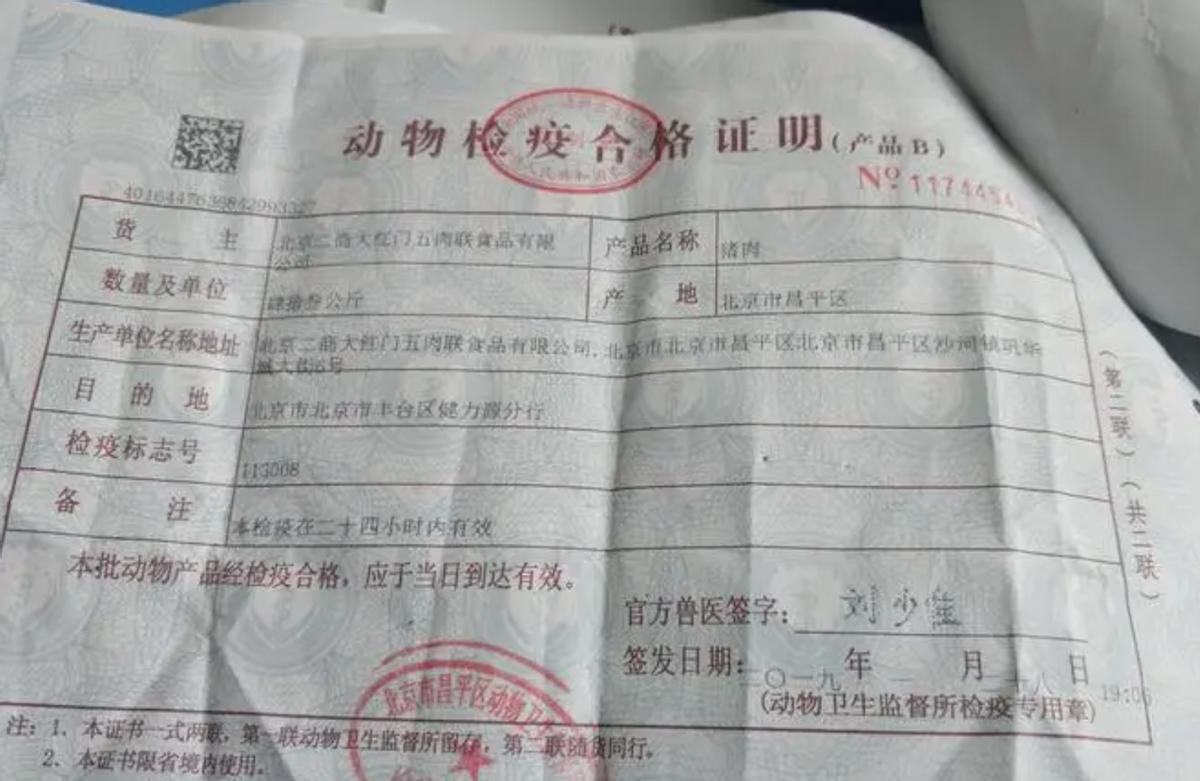 动物检疫合格证明(产品B)
№
货主 北京二商大红门五肉联食品有限公司 产品名称 猪肉
数量及单位 肆拾叁公斤 产地 北京市昌平区
生产单位名称地址 北京二商大红门五肉联食品有限公司,北京市北京市昌平区北京市昌平区沙河镇巩华
城大街6号
目的地 北京市北京市丰台区健力源分行
检疫标志号 113008
备注 本检疫在二十四小时内有效
本批动物产品经检疫合格，应于当日到达有效。
官方兽医签字：刘少
签发日期：二〇一九年 月 日
19:06
(动物卫生监督所检疫专用章)
北京市昌平区动物卫生
注：1、本证书一式两联，第一联动物卫生监督所留存，第二联随货同行。
2、本证书限省境内使用。
(第二联)
(共二联)